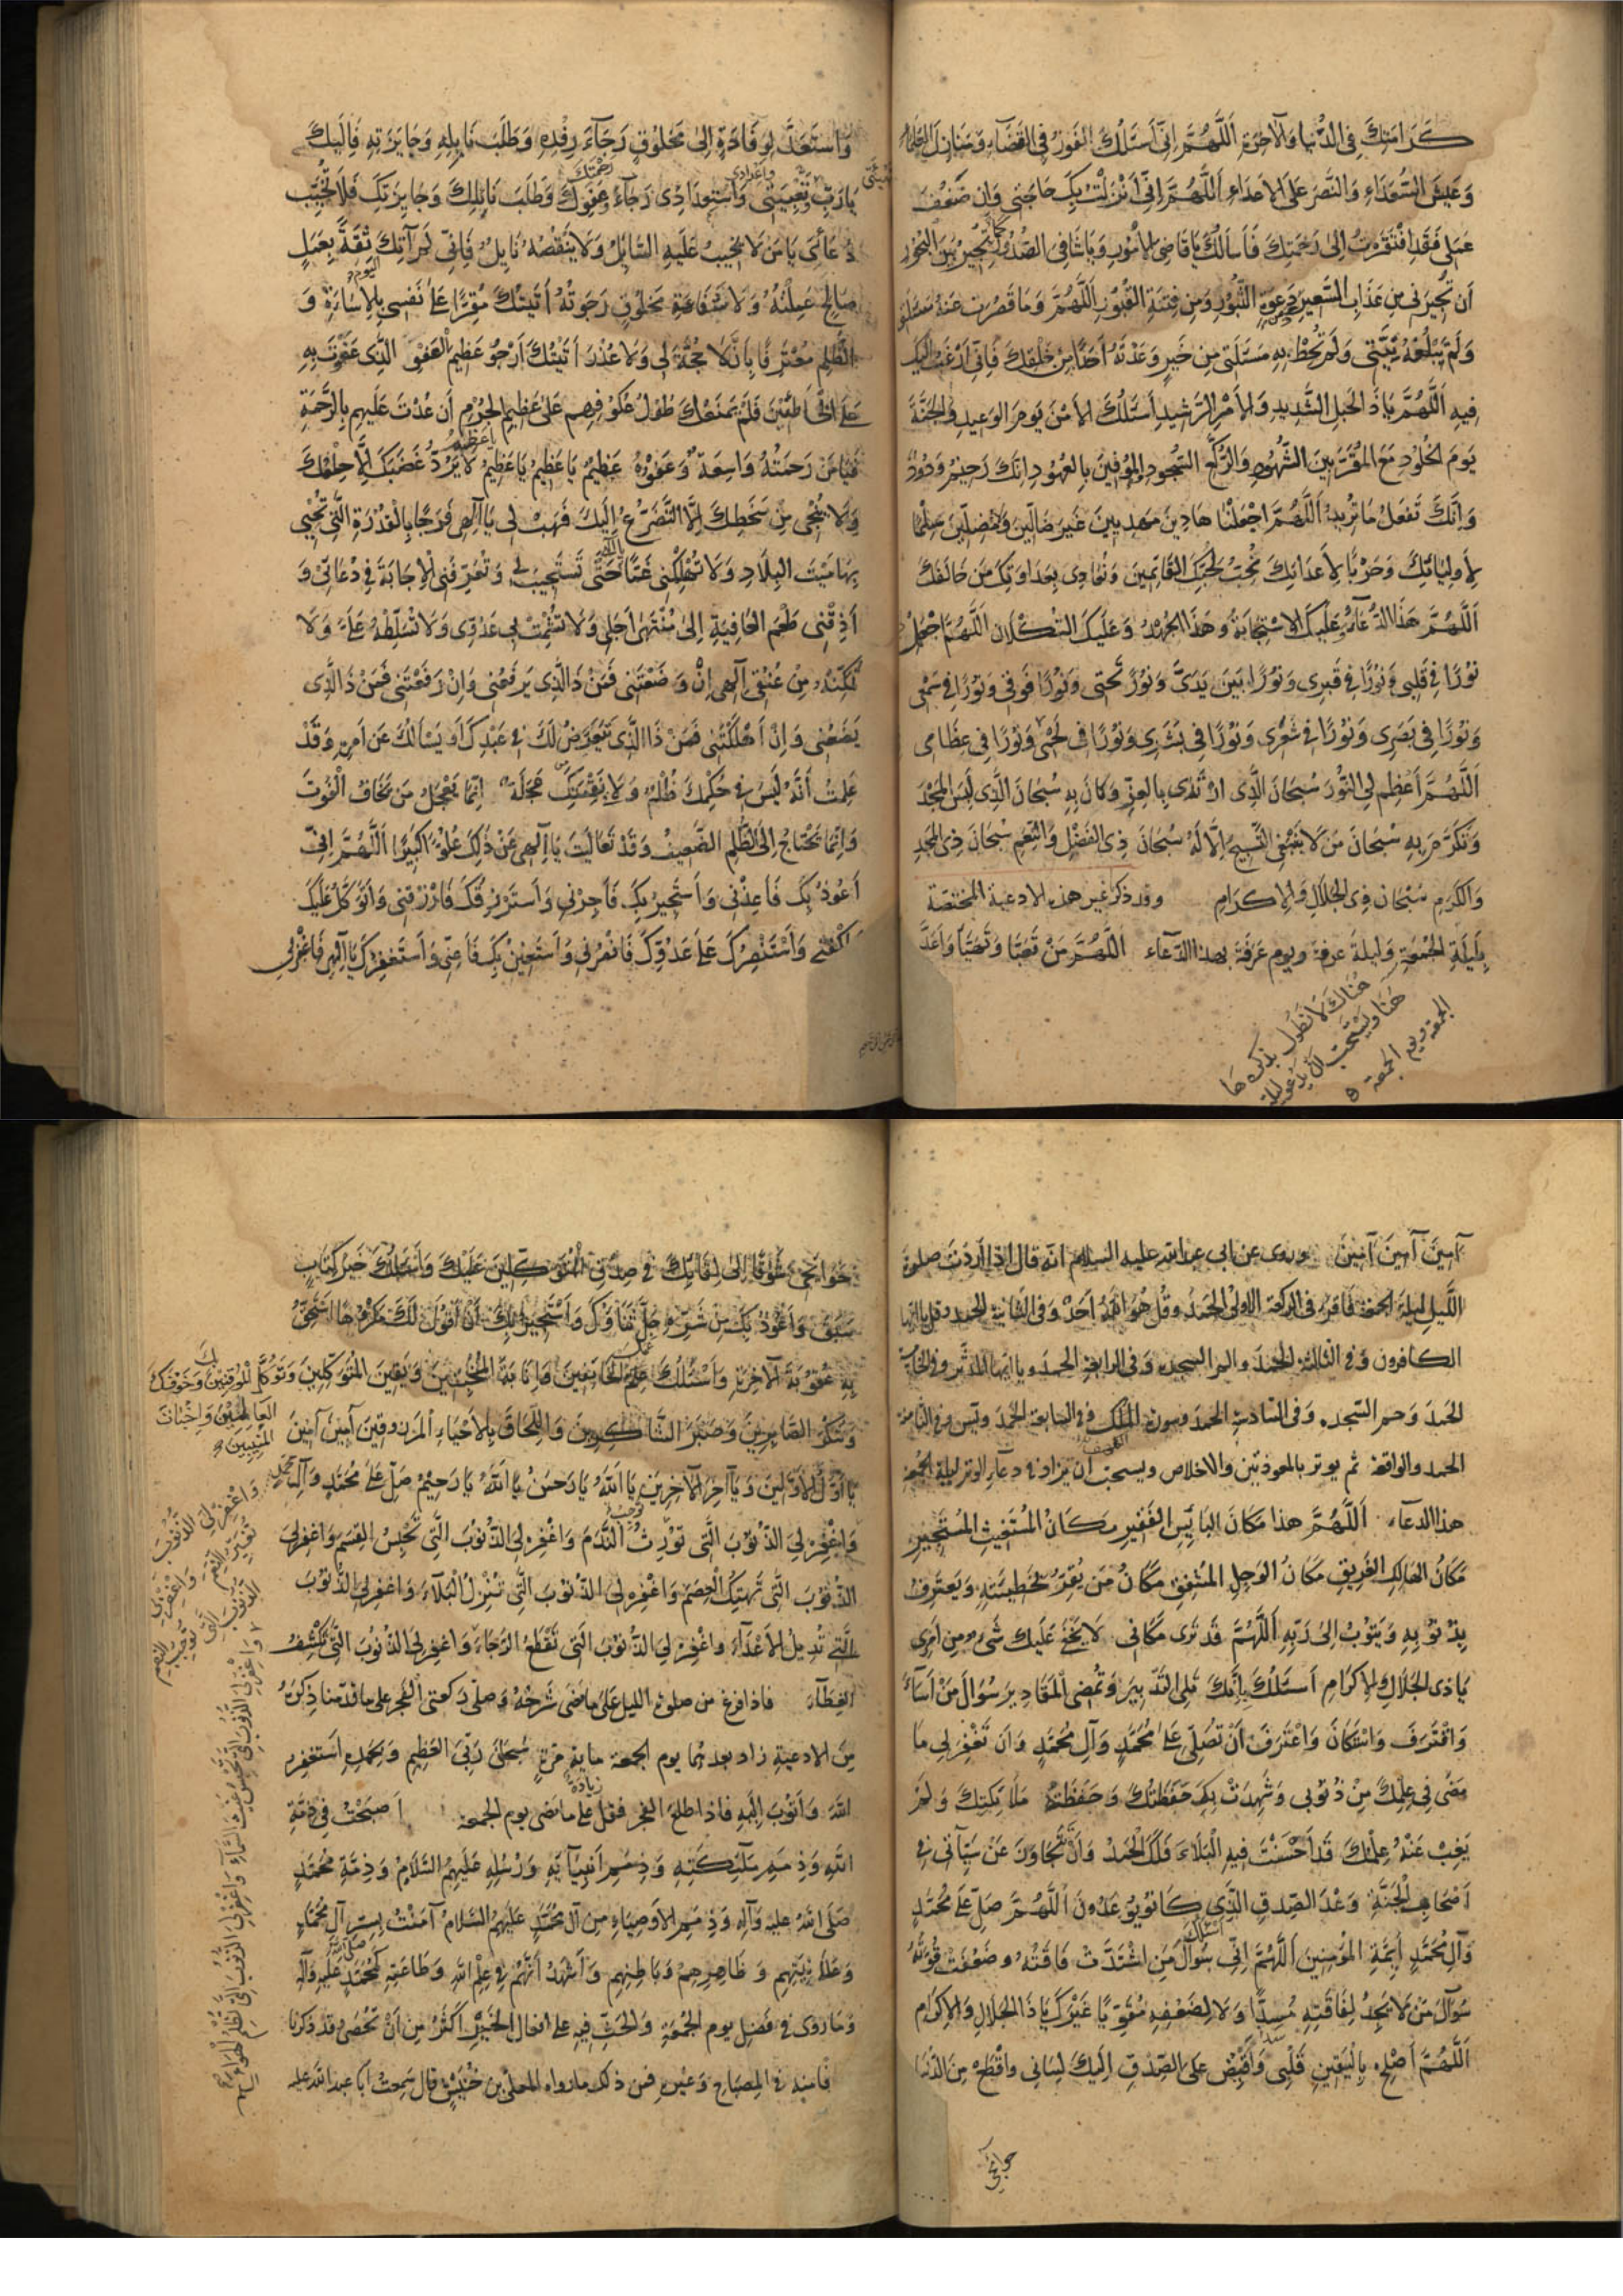 كَرَامَتِكَ فِي الدُّنْيَا وَالآخِرَةِ اَللَّهُمَّ اِنِّي أَسْئَلُكَ الفَوْزَ فِي القَضَآءِ وَمَنَازِلَ العُلَمَآءِ
وَعَيْشَ السُّعَدَاءِ وَالنَّصْرَ عَلَى الأَعْدَاءِ اَللَّهُمَّ اِنِّي أَنْزَلْتُ بِكَ حَاجَتِي وَاِن ضَعُفَ
عَمَلِي فَقَدِ افْتَقَرْتُ اِلَى رَحْمَتِكَ فَأَسْأَلُكَ يَا قَاضِيَ الأُمُورِ وَيَا شَافِيَ الصُّدُورِ كَمَا تُجِيرُ بَيْنَ البُحُورِ
أَن تُجِيرَنِي مِن عَذَابِ السَّعِيرِ وَمِن دَعْوَةِ الثُّبُورِ وَمِن فِتْنَةِ القُبُورِ اَللَّهُمَّ وَمَا قَصُرَت عَنْهُ مَسْئَلَتِي
وَلَمْ تَبْلُغْهُ نِيَّتِي وَلَمْ تُحِطْ بِهِ مَسْئَلَتِي مِن خَيْرٍ وَعَدْتَهُ أَحَدًا مِن خَلْقِكَ فَاِنِّي أَرْغَبُ اِلَيْكَ
فِيهِ اَللَّهُمَّ يَا ذَا الحَبْلِ الشَّدِيدِ وَالأَمْرِ الرَّشِيدِ أَسْئَلُكَ الأَمْنَ يَوْمَ الوَعِيدِ وَالجَنَّةَ
يَوْمَ الخُلُودِ مَعَ المُقَرَّبِينَ الشُّهُودِ وَالرُّكَّعِ السُّجُودِ المُوفِينَ بِالعُهُودِ اِنَّكَ رَحِيمٌ وَدُودٌ
وَاِنَّكَ تَفْعَلُ مَا تُرِيدُ اَللَّهُمَّ اجْعَلْنَا هَادِينَ مَهْدِيِّينَ غَيْرَ ضَالِّينَ وَلاَ مُضِلِّينَ سِلْمًا
لِأَوْلِيَائِكَ وَحَرْبًا لِأَعْدَائِكَ نُحِبُّ بِحُبِّكَ التَّائِبِينَ وَنُعَادِي بِعَدَاوَتِكَ مَن خَالَفَكَ
اَللَّهُمَّ هَذَا الدُّعَآءُ وَعَلَيْكَ الاِسْتِجَابَةُ وَهَذَا الجُهْدُ وَعَلَيْكَ التُّكْلاَنُ اَللَّهُمَّ اجْعَل لِي
نُورًا فِي قَلْبِي وَنُورًا فِي قَبْرِي وَنُورًا بَيْنَ يَدَيَّ وَنُورًا تَحْتِي وَنُورًا فَوْقِي وَنُورًا فِي سَمْعِي
وَنُورًا فِي بَصَرِي وَنُورًا فِي شَعْرِي وَنُورًا فِي بَشَرِي وَنُورًا فِي لَحْمِي وَنُورًا فِي عِظَامِي
اَللَّهُمَّ أَعْظِم لِيَ النُّورَ سُبْحَانَ الَّذِي ارْتَدَى بِالعِزِّ وَكَانَ بِهِ سُبْحَانَ الَّذِي لَبِسَ المَجْدَ
وَتَكَرَّمَ بِهِ سُبْحَانَ مَن لاَ يَنْبَغِي التَّسْبِيحُ اِلاَّ لَهُ سُبْحَانَ ذِي الفَضْلِ وَالنِّعَمِ سُبْحَانَ ذِي المَجْدِ
وَالكَرَمِ سُبْحَانَ ذِي الجَلاَلِ وَالاِكْرَامِ وقد ذكر غير هذه الادعية المختصة
بِلَيْلَةِ الجُمُعَةِ وَلَيْلَةَ عرفة ويوم عَرَفَةَ بهذا الدّعَاء اَللَّهُمَّ مَنْ تَعَبَّأَ وَتَهَيَّأَ وَأَعَدَّ
هُنَاكَ لاَ نُطَوِّلُ بِذِكْرِهَا
هُنَا وَيُسْتَحَبُّ أَن يَدْعُوَ لَيْلَةَ
الجمعة ويوم الجمعة
وَاسْتَعَدَّ لِوَفَادَةٍ اِلَى مَخْلُوقٍ رَجَآءَ رِفْدِهِ وَطَلَبَ نَايِلِهِ وَجَايِزَتِهِ فَاِلَيْكَ
يَا رَبِّ تَعْبِيَتِي وَاسْتِعْدَادِي رَجَآءَ عَفْوِكَ وَطَلَبَ نَايِلِكَ وَجَايِزَتِكَ فَلاَ تُخَيِّبْ
دُعَائِي يَا مَن لاَ يَخِيبُ عَلَيْهِ السَّايِلُ وَلاَ يَنْقُصُهُ نَايِلٌ فَاِنِّي لَمْ آتِكَ ثِقَةً بِعَمَلٍ
صَالِحٍ عَمِلْتُهُ وَلاَ شَفَاعَةِ مَخْلُوقٍ رَجَوْتُهُ أَتَيْتُكَ مُقِرًّا عَلَى نَفْسِي بِالاِسَاءَةِ وَ
الظُّلْمِ مُعْتَرِفًا بِأَنْ لاَ حُجَّةَ لِي وَلاَ عُذْرَ أَتَيْتُكَ أَرْجُو عَظِيمَ العَفْوِ الَّذِي عَفَوْتَ بِهِ
عَلَى الخَاطِئِينَ فَلَمْ يَمْنَعْكَ طُولُ عُكُوفِهِم عَلَى عَظِيمِ الجُرْمِ أَن عُدْتَ عَلَيْهِم بِالرَّحْمَةِ
فَيَا مَن رَحْمَتُهُ وَاسِعَةٌ وَعَفْوُهُ عَظِيمٌ يَا عَظِيمُ يَا عَظِيمُ لاَ يَرُدُّ غَضَبَكَ اِلاَّ حِلْمُكَ
وَلاَ يُنْجِي مِن سَخَطِكَ اِلاَّ التَّضَرُّعُ اِلَيْكَ فَهَبْ لِي يَا اِلَهِي فَرَجًا بِالقُدْرَةِ الَّتِي تُحْيِي
بِهَا مَيْتَ البِلاَدِ وَلاَ تُهْلِكْنِي غَمًّا حَتَّى تَسْتَجِيبَ لِي وَتُعَرِّفَنِي الاِجَابَةَ فِي دُعَائِي وَ
أَذِقْنِي طَعْمَ العَافِيَةِ اِلَى مُنْتَهَى أَجَلِي وَلاَ تُشْمِتْ بِي عَدُوِّي وَلاَ تُسَلِّطْهُ عَلَيَّ وَلاَ
تُمَكِّنْهُ مِنْ عُنُقِي اِلَهِي اِنْ وَضَعْتَنِي فَمَنْ ذَا الَّذِي يَرْفَعُنِي وَاِنْ رَفَعْتَنِي فَمَنْ ذَا الَّذِي
يَضَعُنِي وَاِنْ أَهْلَكْتَنِي فَمَنْ ذَا الَّذِي يَتَعَرَّضُ لَكَ فِي عَبْدِكَ أَو يَسْأَلُكَ عَن أَمْرِهِ وَقَدْ
عَلِمْتُ أَنَّهُ لَيْسَ فِي حُكْمِكَ ظُلْمٌ وَلاَ فِي نَقِمَتِكَ عَجَلَةٌ اِنَّمَا يَعْجَلُ مَن يَخَافُ الْفَوْتَ
وَاِنَّمَا يَحْتَاجُ اِلَى الظُّلْمِ الضَّعِيفُ وَقَدْ تَعَالَيْتَ يَا اِلَهِي عَنْ ذَلِكَ عُلُوًّا كَبِيرًا اَللَّهُمَّ اِنِّي
أَعُوذُ بِكَ فَأَعِذْنِي وَأَسْتَجِيرُ بِكَ فَأَجِرْنِي وَأَسْتَرْزِقُكَ فَارْزُقْنِي وَأَتَوَكَّلُ عَلَيْكَ
فَاكْفِنِي وَأَسْتَنْصِرُكَ عَلَى عَدُوِّكَ فَانْصُرْنِي وَأَسْتَعِينُ بِكَ فَأَعِنِّي وَأَسْتَغْفِرُكَ يَا اِلَهِي فَاغْفِرْ لِي
آمِينَ آمِينَ آمِينَ وروى عن ابي عبد الله عليه السلام انّه قال اذا أردت صلوة
اللَّيلِ ليلة الجمعة فاقرء في الركعة الاولى الحمد وقُلْ هُوَ اللَّهُ أَحَدٌ وَفي الثانية الحمد وقل يا ايها
الكافرون وَفي الثالثة الحمدَ والم السجدة وَفي الرابعة الحمد ويا ايّها المدّثّر وفي الخامسة
الحمدَ وَحم السّجدة وَفي السّادسة الحمد وسورة المُلك وفي السابعة الحمدَ ويٓس وفي الثامنة
الحمد والواقعة ثم يوتر بالمعوذتين والاخلاص ويستحبّ أن يزاد في دعاءِ الوتر ليلة الجمعة
هذا الدعاء اَللَّهُمَّ هذا مَكَانُ البَائِسِ الفَقِيرِ مَكَانُ المُسْتَغِيثِ المُسْتَجِيرِ
مَكَانُ الهَالِكِ الغَرِيقِ مَكَانُ الوَجِلِ المُشْفِقِ مَكَانُ مَنْ يُقِرُّ بِخَطِيئَتِهِ وَيَعْتَرِفُ
بِذُنُوبِهِ وَيَتُوبُ اِلَى رَبِّهِ اَللَّهُمَّ قَدْ تَرَى مَكَانِي لاَ يَخْفَى عَلَيْكَ شَيْءٌ مِن أَمْرِي
يَا ذِي الجَلاَلِ وَالاِكْرَامِ أَسْئَلُكَ بِأَنَّكَ تَلِي التَّدْبِيرَ وَتُمْضِي المَقَادِيرَ سُؤَالَ مَنْ أَسَآءَ
وَاقْتَرَفَ وَاسْتَكَانَ وَاعْتَرَفَ أَنْ تُصَلِّيَ عَلَى مُحَمَّدٍ وَآلِ مُحَمَّدٍ وَأَن تَغْفِرَ لِي مَا
مَضَى فِي عِلْمِكَ مِنْ ذُنُوبِي وَشَهِدَتْ بِهِ حَفَظَتُكَ وَحَفِظَتْهُ مَلاَئِكَتُكَ وَلَمْ
يَغِبْ عَنْهُ عِلْمُكَ قَدْ أَحْسَنْتَ فِيهِ الْبَلاَءَ فَلَكَ الْحَمْدُ وَأَنْ تَتَجَاوَزَ عَنْ سَيِّآتِي فِي
أَصْحَابِ الْجَنَّةِ وَعْدَ الصِّدقِ الَّذِي كَانُوا يُوعَدُونَ اَللَّهُمَّ صَلِّ عَلَى مُحَمَّدٍ
وَآلِ مُحَمَّدٍ أَئِمَّةِ المُؤْمِنِينَ اَللَّهُمَّ اِنِّي أَسْأَلُكَ سُؤَالَ مَنِ اشْتَدَّتْ فَاقَتُهُ وَضَعُفَتْ قُوَّتُهُ
سُؤَالَ مَنْ لاَ يَجِدُ لِفَاقَتِهِ مُسِدًّا وَلاَ لِضَعْفِهِ مُقَوِّيًا غَيْرَكَ يَا ذَا الجَلاَلِ وَالاِكْرَامِ
اَللَّهُمَّ أَصْلِحْ بِالْيَقِينِ قَلْبِي وَاقْبِضْ عَلَى الصِّدْقِ اِلَيْكَ لِسَانِي وَاقْطَعْ مِنَ الدُّنْيَا
حوائجي
حَوَائِجِي شَوْقًا اِلَى لِقَائِكَ فِي صِدْقِ الْمُتَوَكِّلِينَ عَلَيْكَ وَأَسْئَلُكَ خَيْرَ كِتَابٍ
سَبَقَ وَأَعُوذُ بِكَ مِنْ شَرِّهِ جَلَّ ثَنَاؤُكَ وَأَسْتَجِيرُ بِكَ أَنْ أَقُولَ لَكَ مَكْرُوهًا أَسْتَحِقُّ
بِهِ عُقُوبَةَ الآخِرَةِ وَأَسْئَلُكَ عِلْمَ الْخَائِفِينَ وَاِنَابَةَ المُخْبِتِينَ وَيَقِينَ المُتَوَكِّلِينَ وَتَوَكُّلَ المُوقِنِينَ بِكَ وَخَوْفَكَ
وَشُكْرَ الصَّابِرِينَ وَصَبْرَ الشَّاكِرِينَ وَاللِّحَاقَ بِالأَحْيَاءِ الْمَرْزُوقِينَ آمِينَ آمِينَ
العَالِمِينَ وَاِخْبَاتَ
المُنِيبِينَ
يَا أَوَّلَ الأَوَّلِينَ وَيَا آخِرَ الآخِرِينَ يَا اَللَّهُ يَا رَحْمَنُ يَا اَللَّهُ يَا رَحِيمُ صَلِّ عَلَى مُحَمَّدٍ وَآلِ مُحَمَّدٍ
وَاغْفِرْ لِيَ الذُّنُوبَ الَّتِي تُورِثُ النَّدَمَ وَاغْفِرْ لِيَ الذُّنُوبَ الَّتِي تَحْبِسُ القِسَمَ وَاغْفِرْ لِيَ
الذُّنُوبَ الَّتِي تَهْتِكُ الْعِصَمَ وَاغْفِرْ لِيَ الذُّنُوبَ الَّتِي تُنْزِلُ الْبَلاَءَ وَاغْفِرْ لِيَ الذُّنُوبَ
الَّتِي تُدِيلُ الأَعْدَآءَ وَاغْفِرْ لِيَ الذُّنُوبَ الَّتِي تَقْطَعُ الرَّجَاءَ وَاغْفِرْ لِيَ الذُّنُوبَ الَّتِي تَكْشِفُ
الغِطَآءَ فاذا فرغ من صلوة الليل عَلَى مَا مَضَى شَرْحُهُ وَصَلَّى ركعتي الفَجْرِ على ما قدّمنا ذِكْرَهُ
مِنَ الأدعِيَةِ زاد بعدهما يوم الجمعة ماية مَرَّةٍ سُبْحَانَ رَبِّيَ العَظِيمِ وَبِحَمْدِهِ أَسْتَغْفِرُ
اللَّهَ وَأَتُوبُ اِلَيْهِ فَاذا طلع الفجر فقل زيادة على ما مضى يوم الجمعة أَصْبَحْتُ فِي ذِمَّةِ
اللَّهِ وَذِمَمِ مَلَئِكَتِهِ وَذِمَمِ أَنْبِيَآئِهِ وَرُسُلِهِ عَلَيْهِمُ السَّلاَمُ وَذِمَّةِ مُحَمَّدٍ
صَلَّى اللَّهُ عليه وَآلِهِ وَذِمَمِ الأَوْصِيَاءِ مِن آلِ مُحَمَّدٍ عَلَيْهِمُ السَّلاَمُ آمَنْتُ بِسِرِّ آلِ مُحَمَّدٍ
وَعَلاَنِيَتِهِم وَظَاهِرِهِمْ وَبَاطِنِهِم وَأَشْهَدُ أَنَّهُمْ فِي عِلْمِ اللَّهِ وَطَاعَتِهِ كَمُحَمَّدٍ صَلَّى اللَّهُ عَلَيْهِ وَآلِهِ
وَمَا رُوِيَ فِي فَضْلِ يوم الجُمُعَةِ وَالحَثِّ فِيهِ على افعال الخَيْرِ أَكْثَرُ مِن أَنْ تُحْصَى قد ذكرنا
مِنه في المِصباحِ وَغيرِهِ فمن ذلك ما رواه المعلى بن خُنَيْسٍ قال سَمِعتُ أبا عبد الله عليه